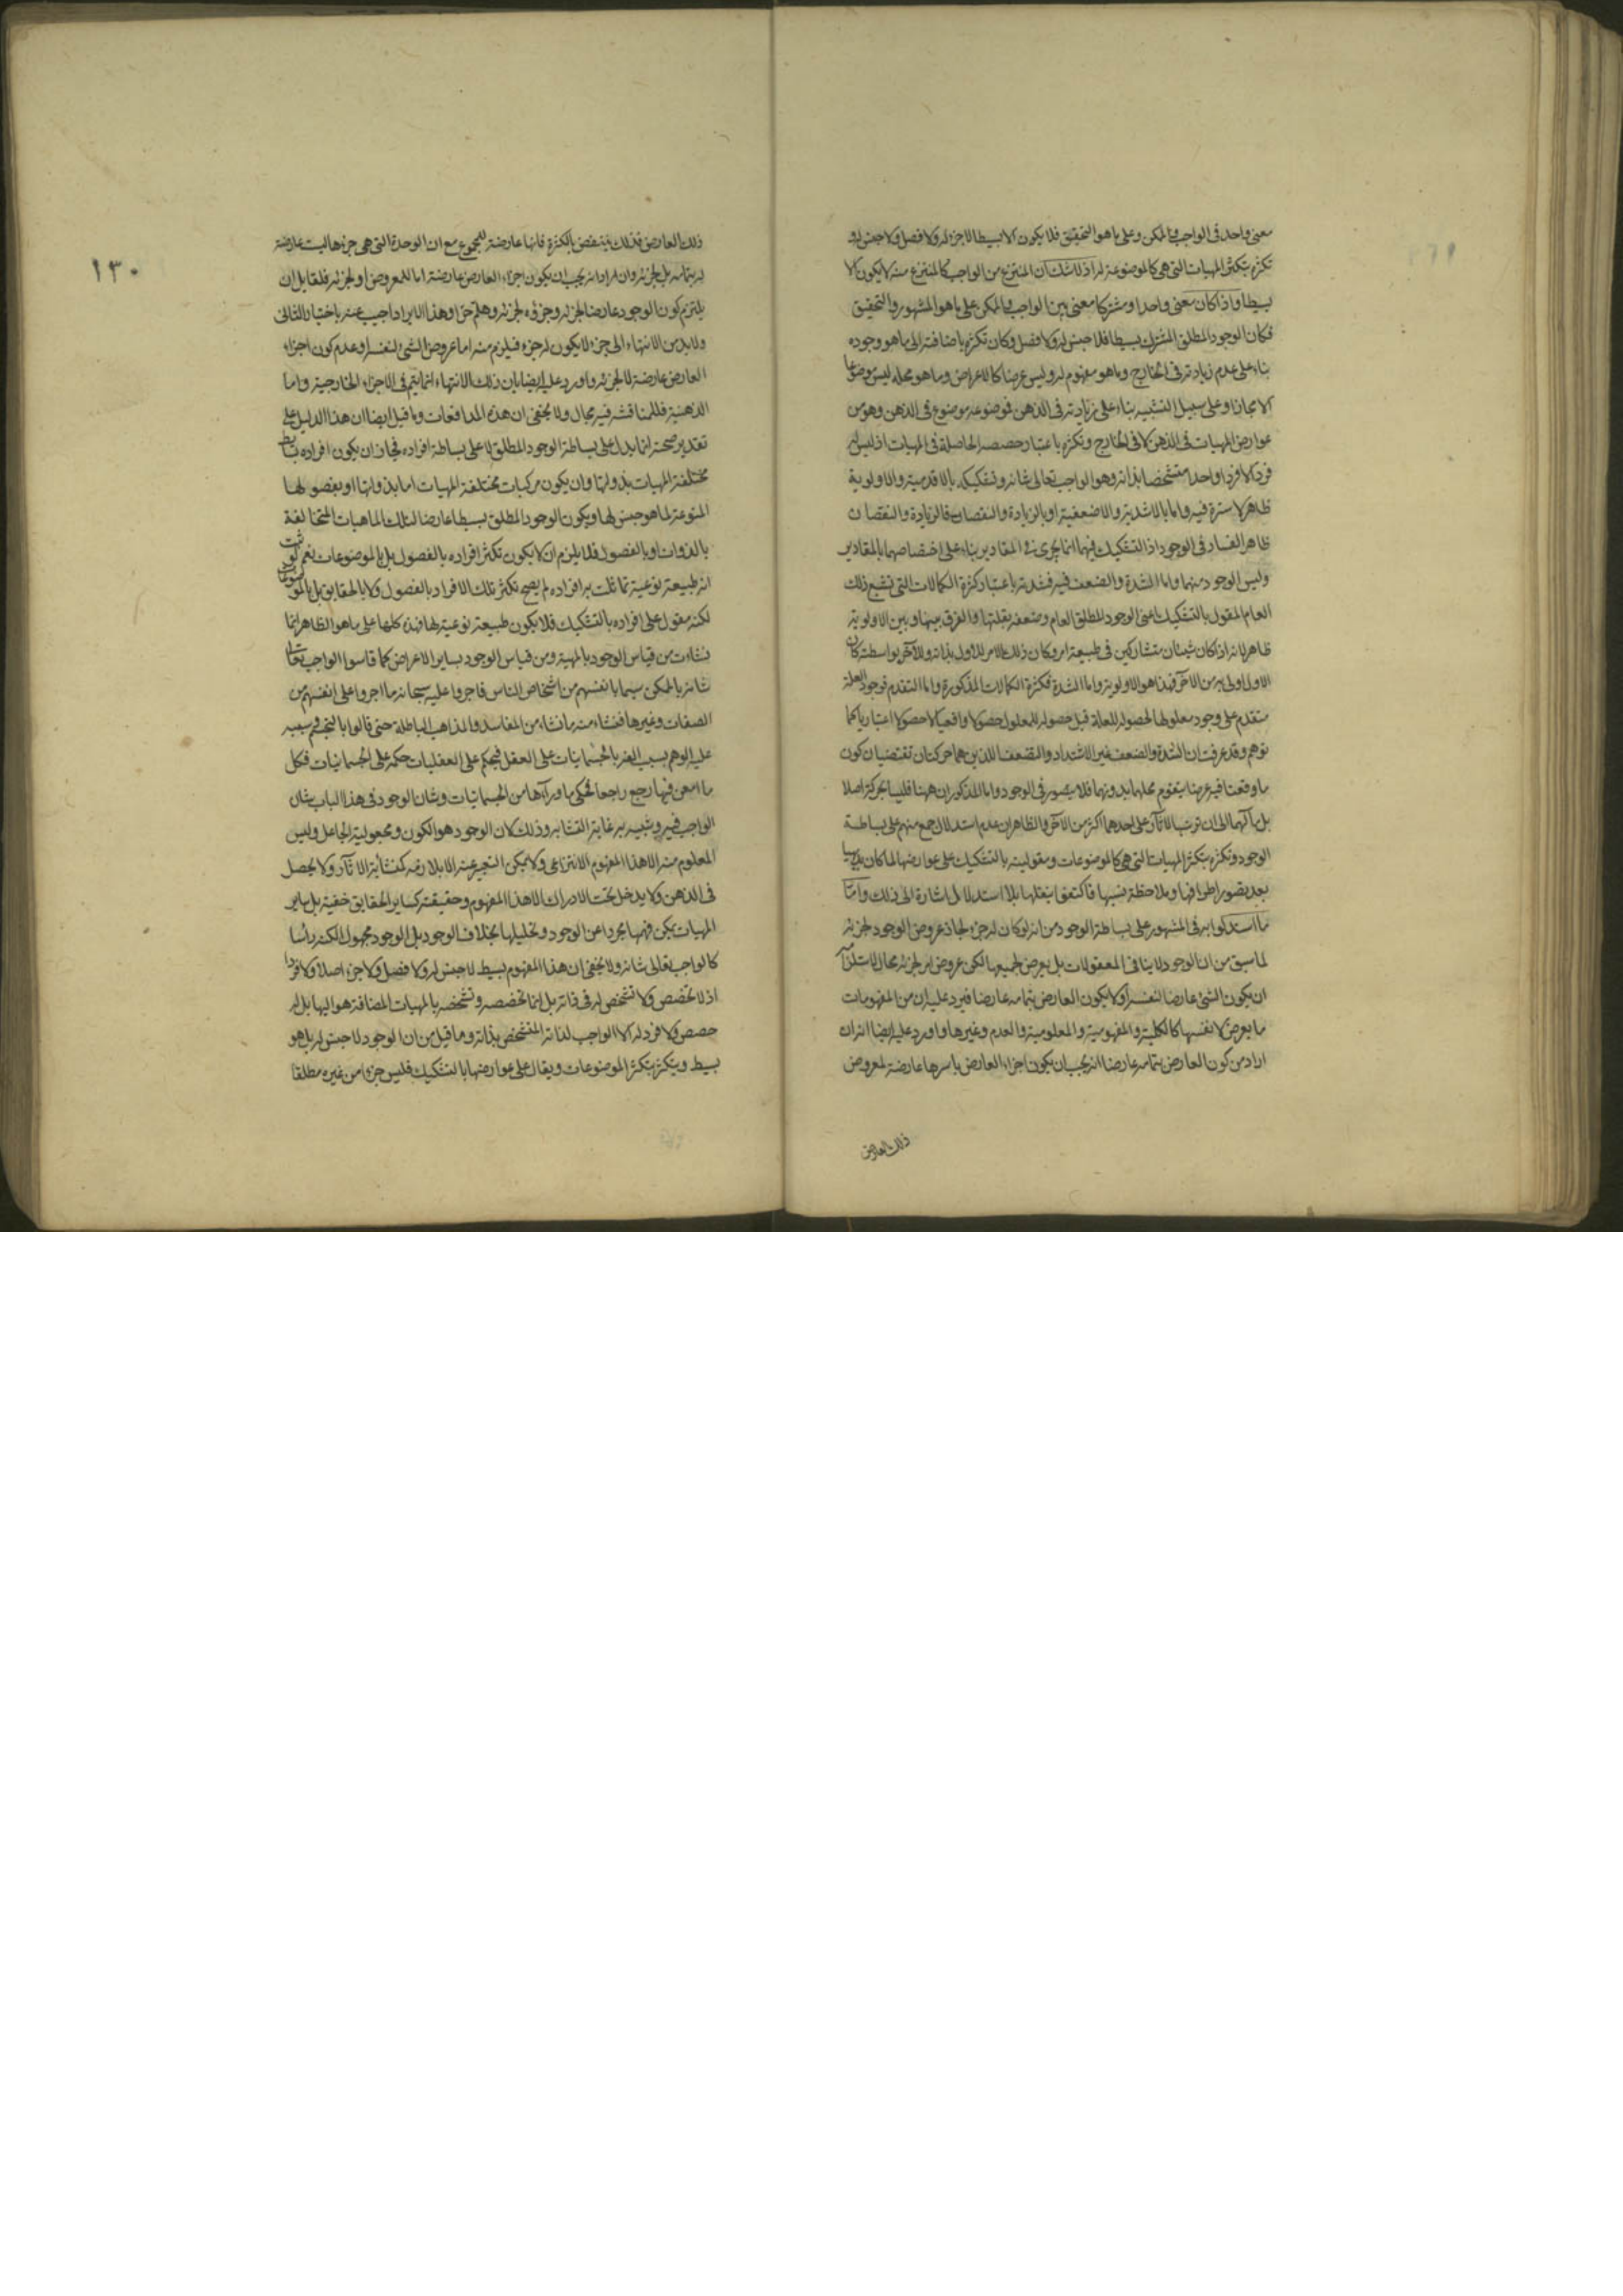 معنى واحد فى الواجب والممكن وعلى ما هو التحقيق فلا يكون الا بسيطا لا جزء له ولا فصل ولا جنس له و
تكثره بتكثر المهيات التى هى كالموضوعة له اذ لا شك ان المنتزع من الواجب كالمنتزع منه لا يكون الا
بسيطا واذا كان معنى واحدا ومشتركا معنى بين الواجب والممكن على ما هو المشهور والتحقيق
فكان الوجود المطلق المشترك بسيطا فلا جنس له ولا فصل وكان تكثره باضافته الى ما هو وجوده
بناء على عدم زيادته فى الخارج وما هو مفهوم له وليس عرضا كالاعراض وما هو محله ليس موضوعا
الا مجازا وعلى سبيل التشبيه بناء على زيادته فى الذهن فموضوعه موضوع فى الذهن وهو من
عوارض المهيات فى الذهن لا فى الخارج وتكثره باعتبار حصصه الحاصلة فى المهيات اذ ليس له
فرد الا فردا واحدا متشخصا بذاته وهو الواجب تعالى شانه وتشكيكه بالاقدمية والاولوية
ظاهر لا سترة فيه واما بالاشدية والاضعفية او بالزيادة والنقصان فالزيادة والنقصان
ظاهر الفساد فى الوجود اذ التشكيك فيهما انما يجرى فى المقادير بناء على اختصاصهما بالمقادير
وليس الوجود منهما واما الشدة والضعف فيه فشدته باعتبار كثرة الكمالات التى تتبع ذلك
العام المقول بالتشكيك اعنى الوجود المطلق العام وضعفه بقلتها والفرق بينها وبين الاولوية
ظاهر لانه اذا كان شيئان متشاركين فى طبيعة امر وكان ذلك الامر للاول بذاته وللآخر بواسطته كان
الاول اولى به من الآخر فهذا هو الاولوية واما الشدة فكثرة الكمالات المذكورة واما التقدم فوجود العلة
متقدم على وجود معلولها لحصوله للعلة قبل حصوله للمعلول حصولا واقعيا لا حصولا اعتباريا كما
توهم وقد عرفت ان الشدة والضعف غير الاشتداد والتضعف اللذين هما حركتان تقتضيان كون
ما وقعتا فيه عرضا يتقوم محلهما بدونهما فلا يتصور فى الوجود واما المذكوران ههنا فليسا بحركة اصلا
بل مآلهما الى ان ترتب الآثار على احدهما اكثر من الآخر والظاهر ان عدم استدلال جمع منهم على بساطة
الوجود وتكثره بتكثر المهيات التى هى كالموضوعات ومقوليته بالتشكيك على عوارضها لما كان بديهيا
بعد تصور اطرافها وملاحظة نسبها فاكتفوا بنقلها بلا استدلال اشارة الى ذلك واما
ما استدلوا به فى المشهور على بساطة الوجود من انه لو كان له جزء لجاز عروض الوجود لجزئه
لما سبق من ان الوجود لا ينافى المعقولات بل يعرض لجميعها لكن عروض امر لجزئه محال لاستلزامه
ان يكون الشئ عارضا لنفسه او لا يكون العارض بتمامه عارضا فيرد عليه ان من المفهومات
ما يعرض لانفسها كالكلية والمفهومية والمعلومية والعدم وغيرها واورد عليه ايضا انه ان
اراد من كون العارض بتمامه عارضا انه يجب ان يكون اجزاء العارض باسرها عارضة لمعروض
ذلك العارض
١٣٠
ذلك العارض فذلك ينتقض بالكثرة فانها عارضة للمجموع مع ان الوحدة التى هى جزءها ليست عارضة
له بتمامه بل لجزئه وان اراد انه يجب ان يكون اجزاء العارض عارضة اما للمعروض او لجزئه فلقائل ان
يلتزم كون الوجود عارضا لجزئه وجزؤه لجزئه وهلم جرا وهذا الايراد اجيب عنه باختيار الثانى
ولا بد من الانتهاء الى جزء لا يكون له جزء فيلزم منه اما عروض الشئ لنفسه او عدم كون اجزاء
العارض عارضة لا لجزئه واورد عليه ايضا بان ذلك الانتهاء انما يتم فى الاجزاء الخارجية واما
الذهنية فللمناقشة فيه مجال ولا يخفى ان هذه المدافعات وما قيل ايضا ان هذا الدليل على
تقدير صحته انما يدل على بساطة الوجود المطلق لا على بساطة افراده فجاز ان يكون افراده بسائط
مختلفة المهيات بذواتها وان يكون مركبات مختلفة المهيات اما بذواتها او بفصولها
المنوعة لما هو جنس لها ويكون الوجود المطلق بسيطا عارضا لتلك الماهيات المتخالفة
بالذوات او بالفصول فلا يلزم ان لا يكون تكثر افراده بالفصول بل بالموضوعات نعم لو ثبت
انه طبيعة نوعية تماثلت بها افراده لم يصح تكثر تلك الافراد بالفصول ولا بالحقايق بل بالموضوعات
لكنه مقول على افراده بالتشكيك فلا يكون طبيعة نوعية لها فهذه كلها على ما هو الظاهر انما
نشاءت من قياس الوجود بالمهية ومن قياس الوجود بساير الاعراض كما قاسوا الواجب تعالى
شانه بالممكن سيما بانفسهم من اشخاص الناس فاجروا عليه سبحانه ما اجروا على انفسهم من
الصفات وغيرها فنشاء منه ما نشاء من المفاسد والمذاهب الباطلة حتى قالوا بالتجسم وسببه
غلبة الوهم بسبب الفه بالجسمانيات على العقل فيحكم على العقليات حكمه على الجسمانيات فكل
ما امعن فيها رجع راجعا فحكى ما وراءها من الجسمانيات وشان الوجود فى هذا الباب شان
الواجب فيه وشبيه به غاية التشابه وذلك لان الوجود هو الكون ومجعولية الجاعل وليس
المعلوم منه الا هذا المفهوم الانتزاعى ولا يمكن التعبير عنه الا بلازمه كمنشائية الآثار ولا يحصل
فى الذهن ولا يدخل تحت الادراك الا هذا المفهوم وحقيقته كساير الحقايق خفية بل ساير
المهيات يمكن فهمها مجردا عن الوجود وتحليلها بخلاف الوجود بل الوجود مجهول الكنه راسا
كالواجب تعالى شانه ولا يخفى ان هذا المفهوم بسيط لا جنس له ولا فصل ولا جزء اصلا ولا فردا
اذ لا تخصص ولا تشخص له فى ذاته بل انما تخصصه وتشخصه بالمهيات المضافة هو اليها بل له
حصص ولا فرد له الا الواجب لذاته المتشخص بذاته وما قيل من ان الوجود لا جنس له بل هو
بسيط ويتكثر بتكثر الموضوعات ويقال على عوارضها بالتشكيك فليس جزءا من غيره مطلقا